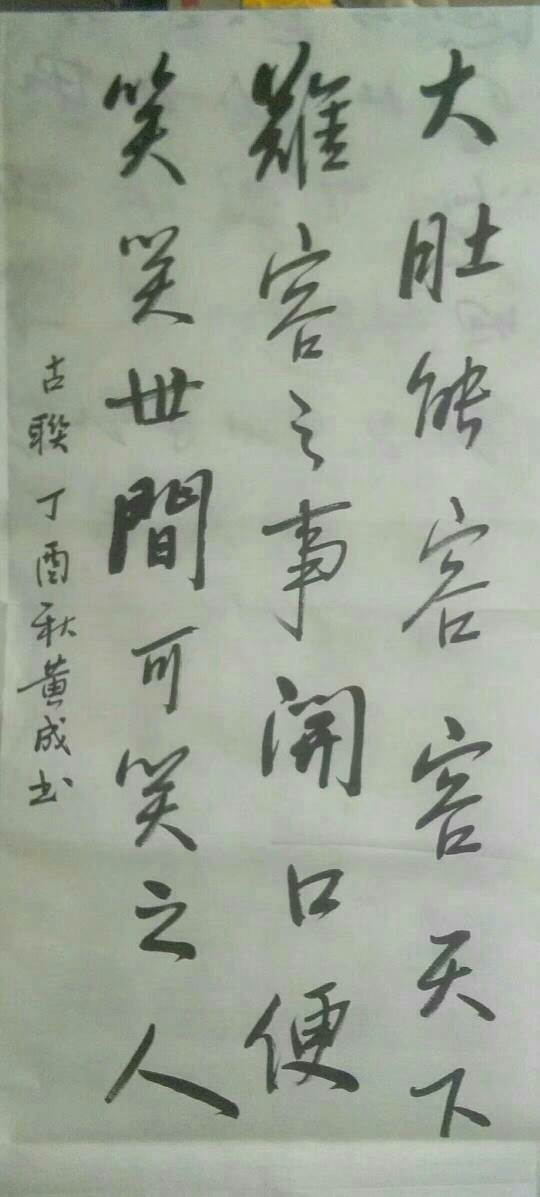 大肚能容容天下
難容之事開口便
笑笑世間可笑之人
古聯丁酉秋黄成书